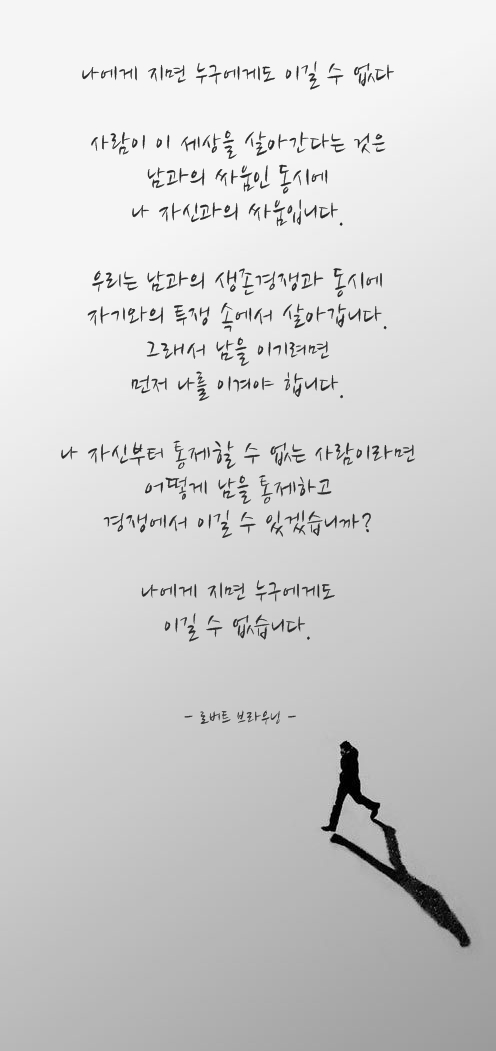 나에게 지면 누구에게도 이길 수 없다
사람이 이 세상을 살아간다는 것은
남과의 싸움인 동시에
나 자신과의 싸움입니다.
우리는 남과의 생존경쟁과 동시에
자기와의 투쟁 속에서 살아갑니다.
그래서 남을 이기려면
먼저 나를 이겨야 합니다.
나 자신부터 통제할 수 없는 사람이라면
어떻게 남을 통제하고
경쟁에서 이길 수 있겠습니까?
나에게 지면 누구에게도
이길 수 없습니다.
- 로버트 브라우닝 -